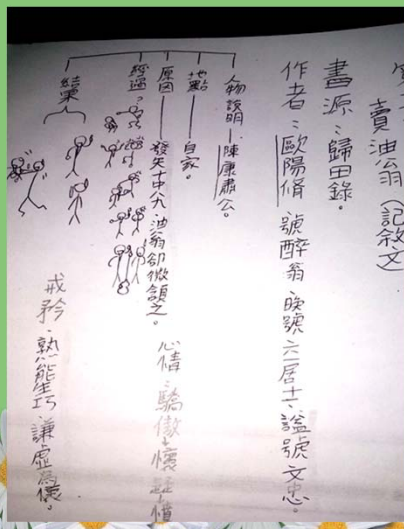 賣油翁（記敘文）
書源：歸田錄。
作者：歐陽脩 號醉翁 晚號六一居士、謚號文忠。
人物說明—陳康肅公。
地點—自家。
原因—發矢十中八九 油翁卻微頷之。
經過：
心情：驕傲
結果
戒矜、熟能生巧、謙虛為懷。